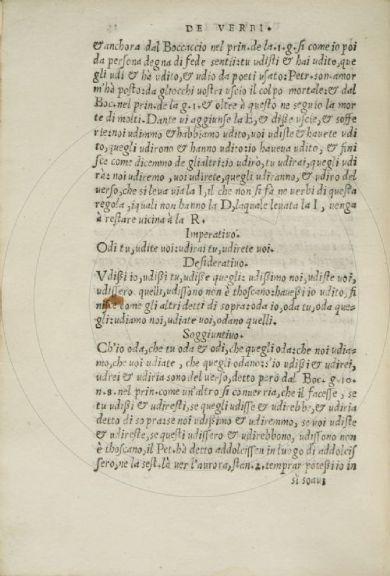 DE VERBI.
& anchora dal Boccaccio nel prin. de la .1. g. si come io poi
da persona degna di fede sentii: tu udisti & hai udito, que
gli udì & hà udito, & udio da poeti usato: Petr. son. amor
m'hà posto: da gliocchi uostri uscio il colpo mortale: & dal
Boc. nel prin. de la g. 1. & oltre à questo ne seguio la mor
te di molti. Dante vi aggiunse la E, & disse uscie, & soffe
rie: noi udimmo & habbiamo udito, voi udiste & hauete udi
to, quegli udirono & hanno udito: io haueua udito, & fini
sce come dicemmo de gli altri: io udirò, tu udirai, quegli udi
rà: noi udiremo, voi udirete, quegli udiranno, & udiro del
verso, che si leua via la I, il che non si fà ne verbi di questa
regola, i quali non hanno la D, laquale leuata la I, uenga
à restare vicina à la R.
Imperatiuo.
Odi tu, udite voi: udirai tu, udirete voi.
Desideratiuo.
Vdißi io, udißi tu, udisse quegli: udißimo noi, udiste voi,
udissero quelli, udissono non è thoscano: hauessi io udito, fi
nisce come gli altri detti di sopra: oda io, oda tu, oda que-
gli: udiamo noi, udiate voi, odano quelli.
Soggiuntiuo.
Ch'io oda, che tu oda & odi, che quegli oda: che noi udia-
mo, che voi udiate, che quegli odano: s'io udißi & udirei,
udrei & udiria sono del verso, detto però dal Boc. g. 10.
n. 8. nel prin. come un'altro si conuerria, che il facesse, se
tu udißi & udiresti, se quegli udisse & udirebbe, & udiria
detto di sopra: se noi udißimo & udiremmo, se uoi udiste
& udireste, se questi udissero & udirebbono, udissono non
è thoscano, il Pet. hà detto addolcissen in luogo di addolcis
sero, ne la sest. là ver l'aurora, stan. 2. temprar potess'io in
sì soaui